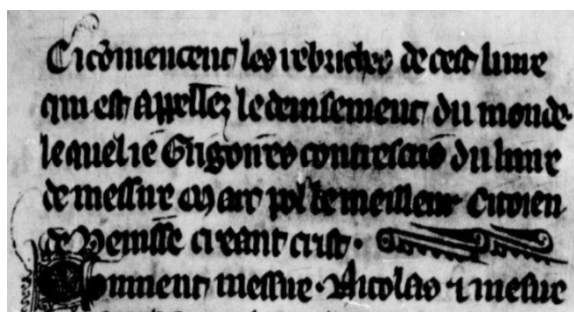 Ci cōmencent les rebriches de cest liure
qui est appellez le deuisement du monde
lequel ie Grigoires contrescris du liure
de messire Marc pol le meilleur citoien
de Venisse creant crist.
Comment messire Nicolas ⁊ messire